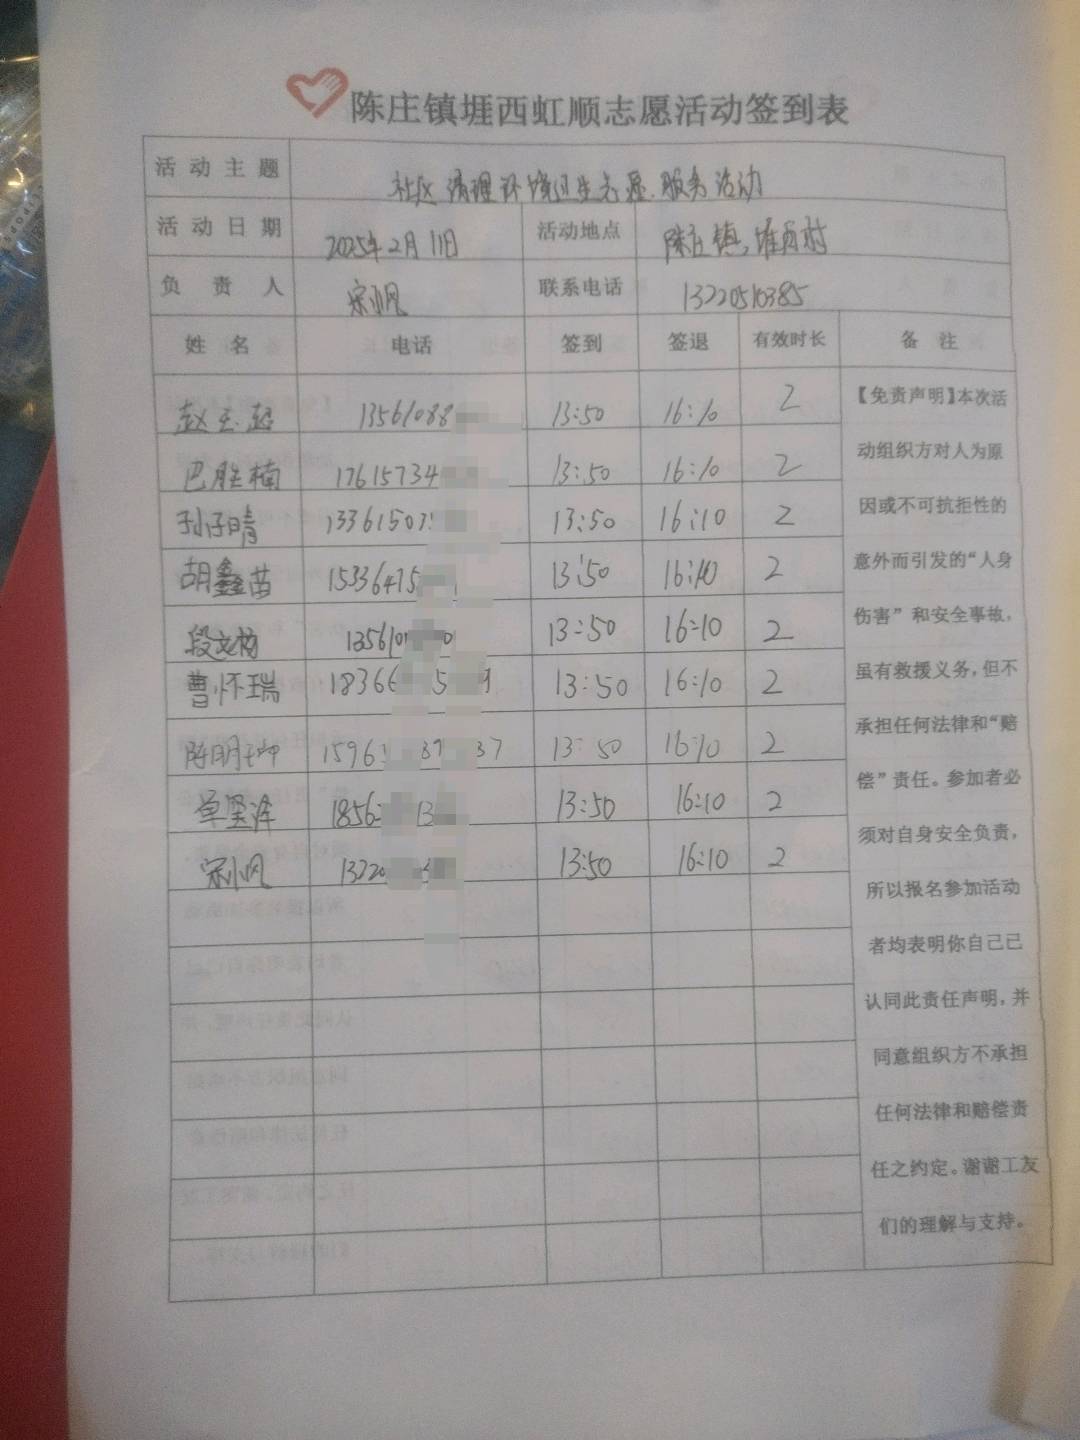 陈庄镇堐西虹顺志愿活动签到表
活动主题 社区清理环境卫生志愿服务活动
活动日期 2025年2月11日 活动地点 陈庄镇,堐西村
负责人 宋小凤 联系电话 13220510385
姓名 电话 签到 签退 有效时长 备注
赵玉超 13561088 13:50 16:10 2
巴胜楠 17615734 13:50 16:10 2
孙子晴 13361507 13:50 16:10 2
胡鑫苗 15336475 13:50 16:10 2
段文梅 13561 0 13:50 16:10 2
曹怀瑞 18366 5 9 13:50 16:10 2
陈明坤 1596 39 37 13:50 16:10 2
单 泽 1856 13 13:50 16:10 2
宋小凤 13220 13:50 16:10 2
【免责声明】本次活
动组织方对人为原
因或不可抗拒性的
意外而引发的“人身
伤害”和安全事故，
虽有救援义务，但不
承担任何法律和“赔
偿”责任。参加者必
须对自身安全负责，
所以报名参加活动
者均表明你自己已
认同此责任声明，并
同意组织方不承担
任何法律和赔偿责
任之约定。谢谢工友
们的理解与支持。